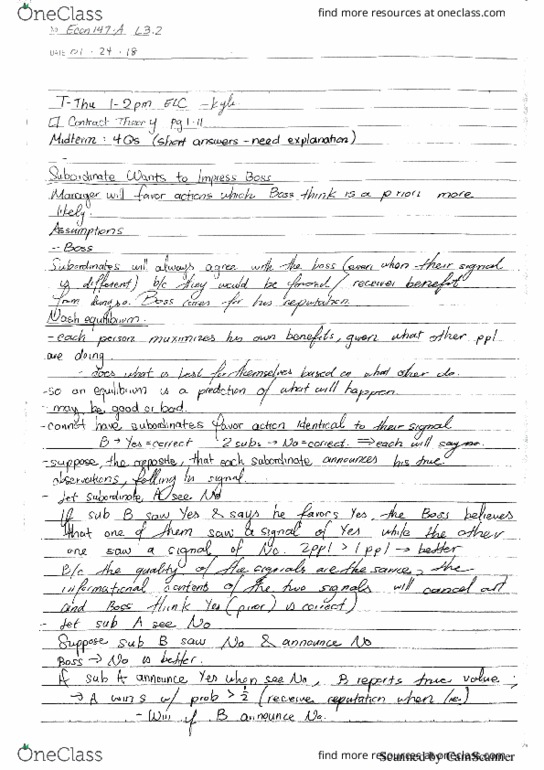 OneClass
find more resources at oneclass.com
No. Econ 147-A L3.2
DATE 01 · 24 · 18
T-Thu 1-2pm ELC -Kyle
Contract Theory pg 1-11
Midterm : 4Qs (short answers - need explanation)
Subordinate Wants to Impress Boss
Manager will favor actions which Boss think is a priori more
likely.
Assumptions
-- Boss
Subordinates will always agree with the boss (even when their signal
is different) b/c they would be favored / receive benefit
from doing so. Boss cares for his reputation
Nash equilibrium.
- each person maximizes his own benefits, given what other ppl
are doing.
- does what is best for themselves based on what other do.
- so an equilibrium is a prediction of what will happen.
- may be good or bad.
- cannot have subordinates favor action identical to their signal
B → Yes = correct 2 subs → No = correct. ⇒ each will say no.
- suppose, the opposite, that each subordinate announces his true
observations, telling in signal.
- let subordinate A see No
If sub B saw Yes & says he favors Yes, the Boss believes
that one of them saw a signal of Yes while the other
one saw a signal of No. 2ppl > 1ppl → better
B/c the quality of the signals are the same, the
informational contents of the two signals will cancel out
and Boss think Yes (prior) is correct)
- let sub A see No
Suppose sub B saw No & announce No
Boss → No is better.
If sub A announce Yes when see No, B reports true value ;
→ A wins w/ prob > 1/2 (receive reputation when
- Win if B announce No.
OneClass
find more resources at oneclass.com
Scanned by CamScanner